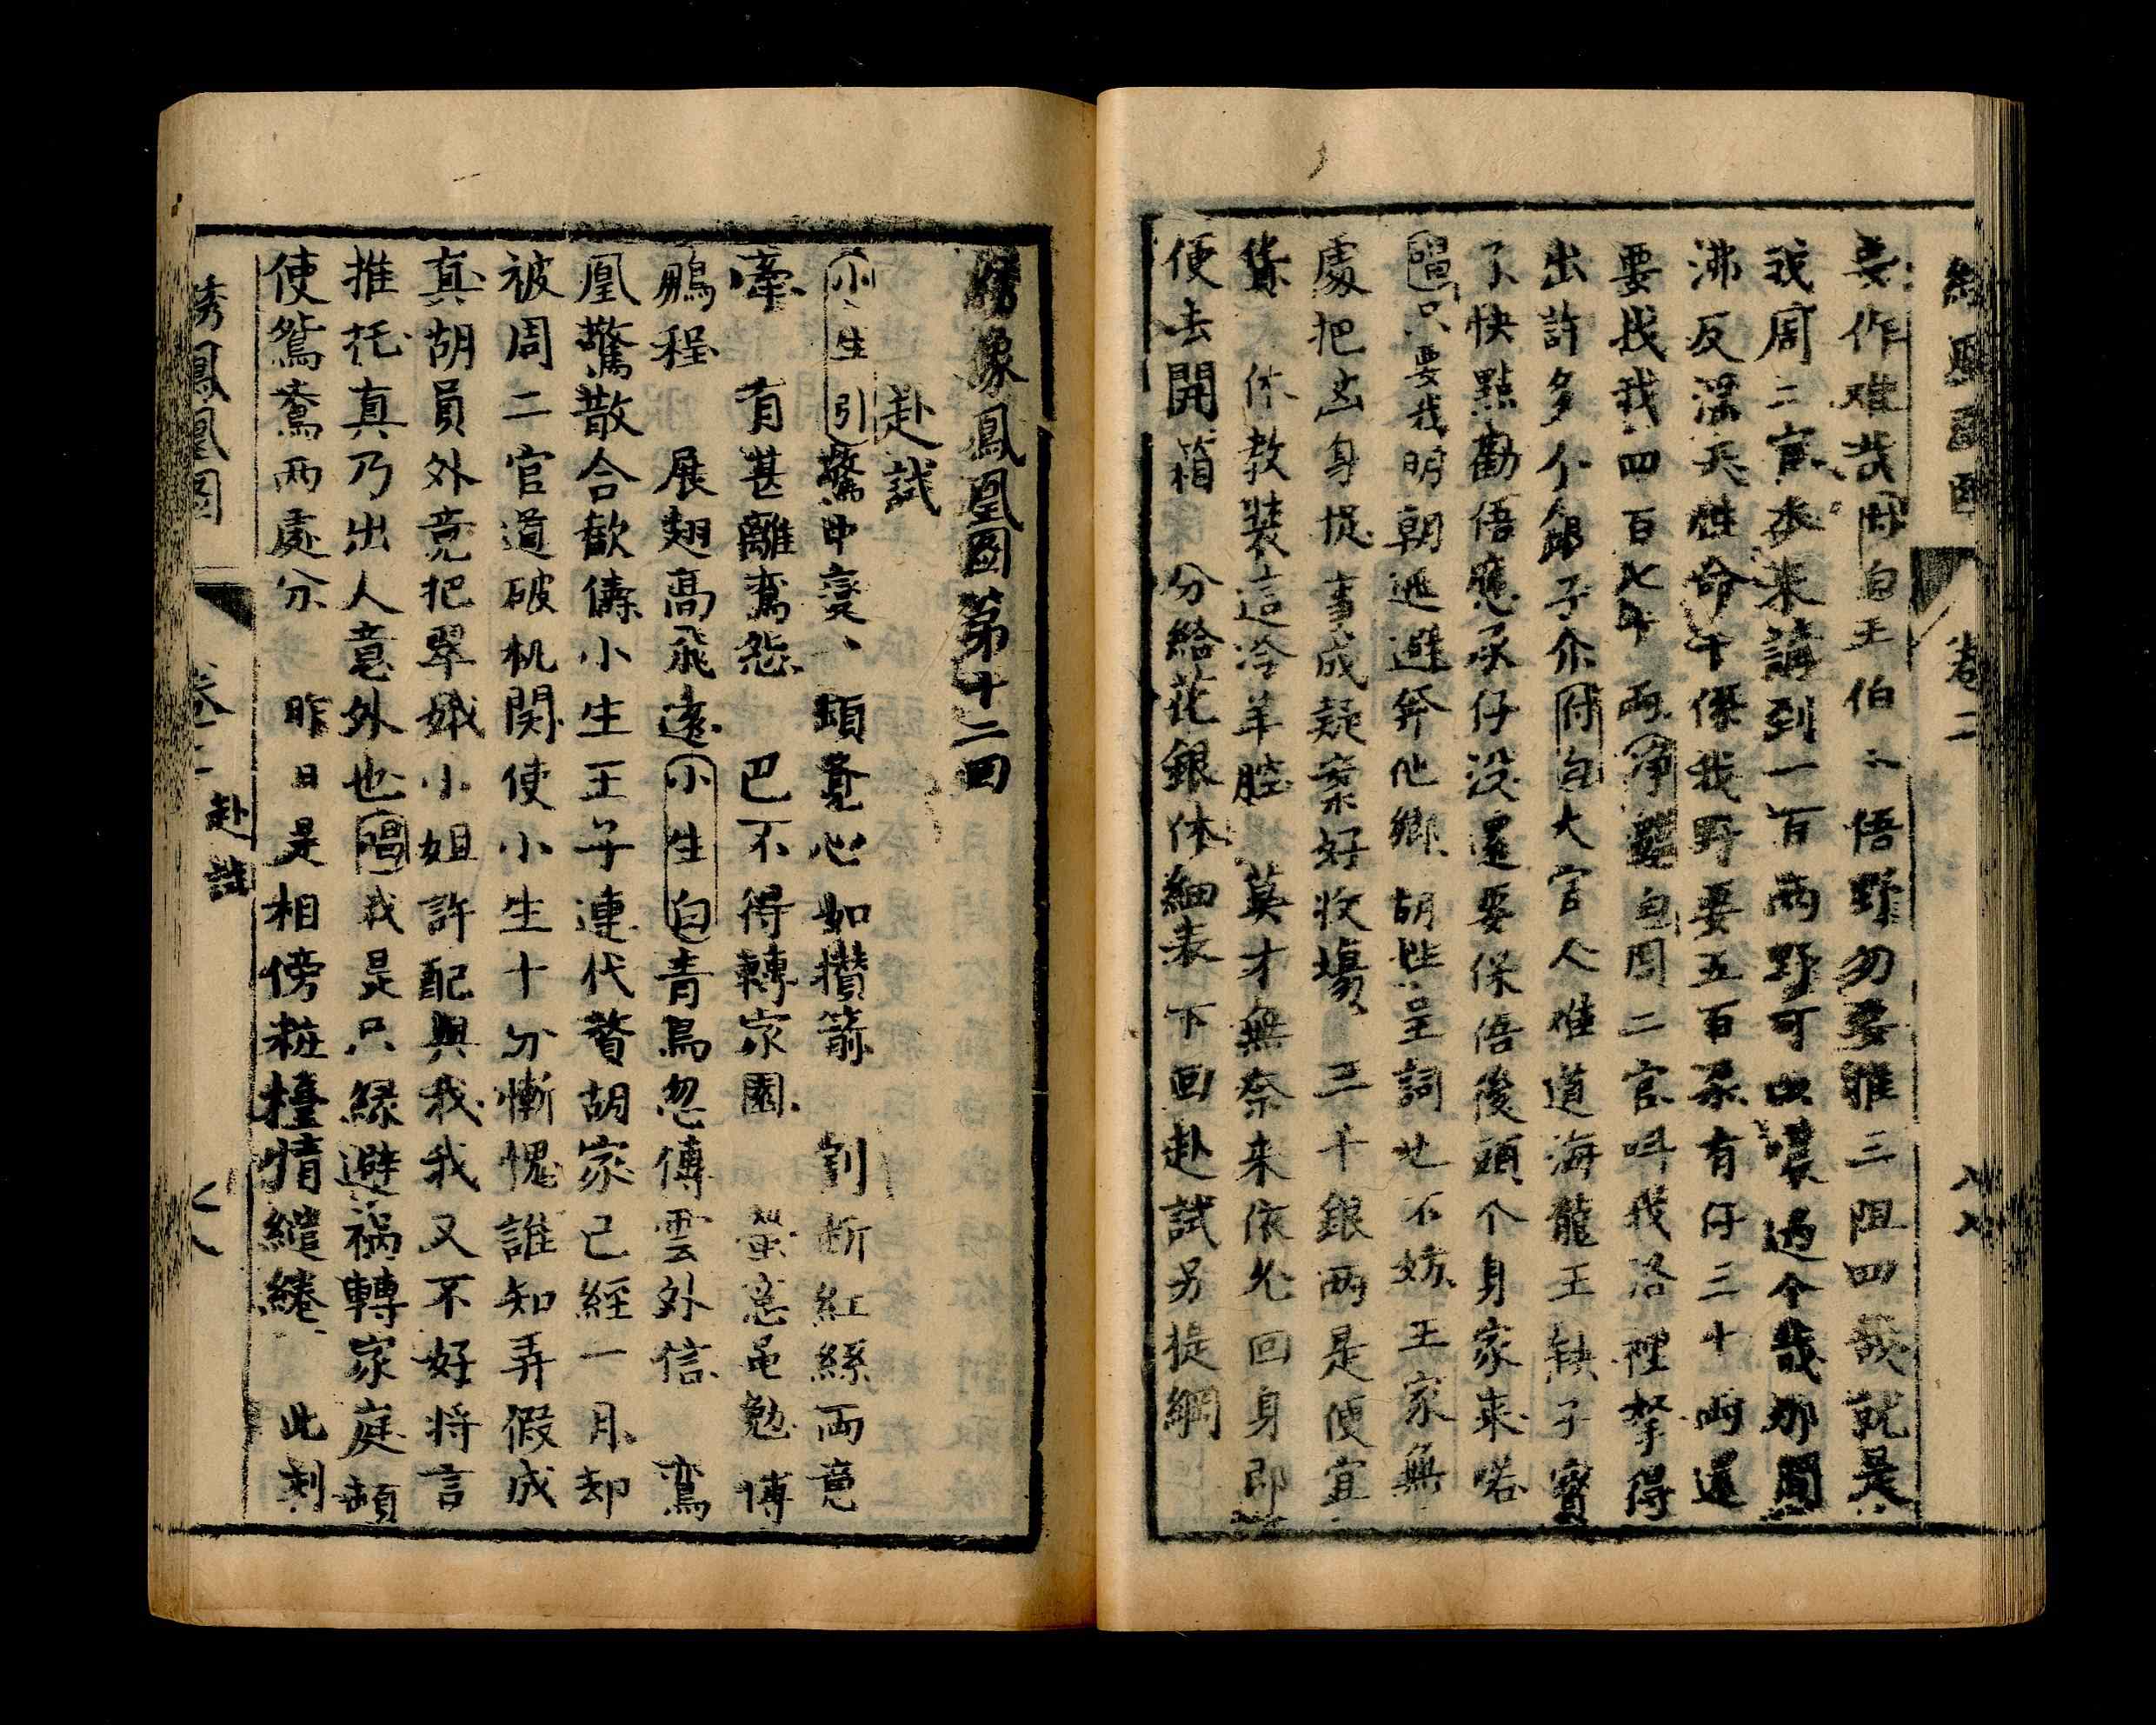 要作难哉付白王伯二悟野勿要推三阻四哉就是
我周二官本来講到一百両野可以噥過个哉那間
沸反滛天性命干係我野要五百両有仔三十両還
要找我四百七十両净白周二官叫我洛裡拏得
出許多个銀子介付白大官人难道海龍王缺子寳
了快點勸悟應承仔没還要保悟後頭个身家来啱
唱只要我明朝逃避奔他鄉胡些呈詞也不妨王家無
處把凶身捉事成疑案好收塲三千銀両是便宜
貨休教裝這冷羊腔莫才無奈来依允回身即
便去開箱分給花銀休細表下回赴試另提綱
繡像鳳凰圖第十二回
赴試
小生引驚中變、頃覺心如攢箭割断紅絲両意
牽有甚離鸞怨巴不得轉家園蛍窓黽勉博
鵬程展翅高飛遠小生白青鳥忽傳雲外信鸞
凰驚散合歓儔小生王子連代贅胡家已經一月却
被周二官道破机関使小生十分慚愧誰知弄假成
真胡員外竟把翠娥小姐許配與我我又不好将言
推托真乃出人意外也唱我是只緣避禍轉家庭頓
使鴛鴦両處分昨日是相傍粧檯情繾綣此刻
绣鳳凰圖
卷二
赴試